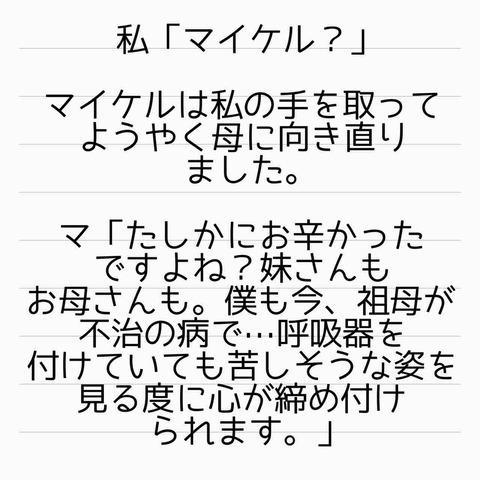 私「マイケル？」
マイケルは私の手を取って
ようやく母に向き直り
ました。
マ「たしかにお辛かった
ですよね？妹さんも
お母さんも。僕も今、祖母が
不治の病で…呼吸器を
付けていても苦しそうな姿を
見る度に心が締め付け
られます。」